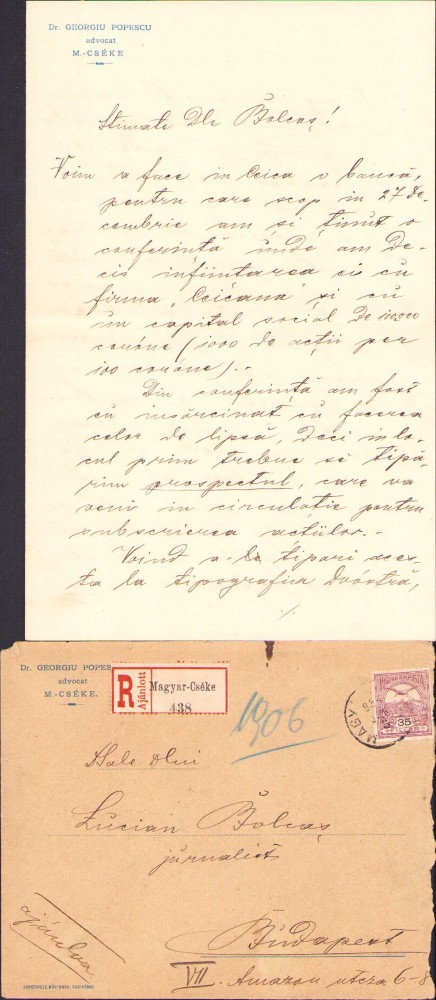 Dr. GEORGIU POPESCU
advocat
M.-CSÉKE
Stimate Dle Bolcaș!
Voim a face in Ceica o bancă,
pentru care scop in 27 De-
cembrie am și ținut o
conferință unde am De-
cis infiintarea ei cu
firma „Ceicana” și cu
un capital social De 100,000
coróne (1000 de acții per
100 coróne). -
Din conferință am fost
eu insărcinat cu facerea
celor de lipsă, Deci in lo-
cul prim trebue să tipă-
rim prospectul, care va
veni in circulatie pentru
subscrierea acțiilor. -
Voind a-la tipari aces-
ta la tipografia Dvóstră,
./.
Dr. GEORGIU POPES
advocat
M.-CSÉKE.
R
Ajánlott
Magyar-Cséke
438
1906
MAGY
35
FILLÉR
Sale Dlui
Lucian Bolcaș
jurnalist
ajánlva
Budapest
VII. Amazon utcza 6-8